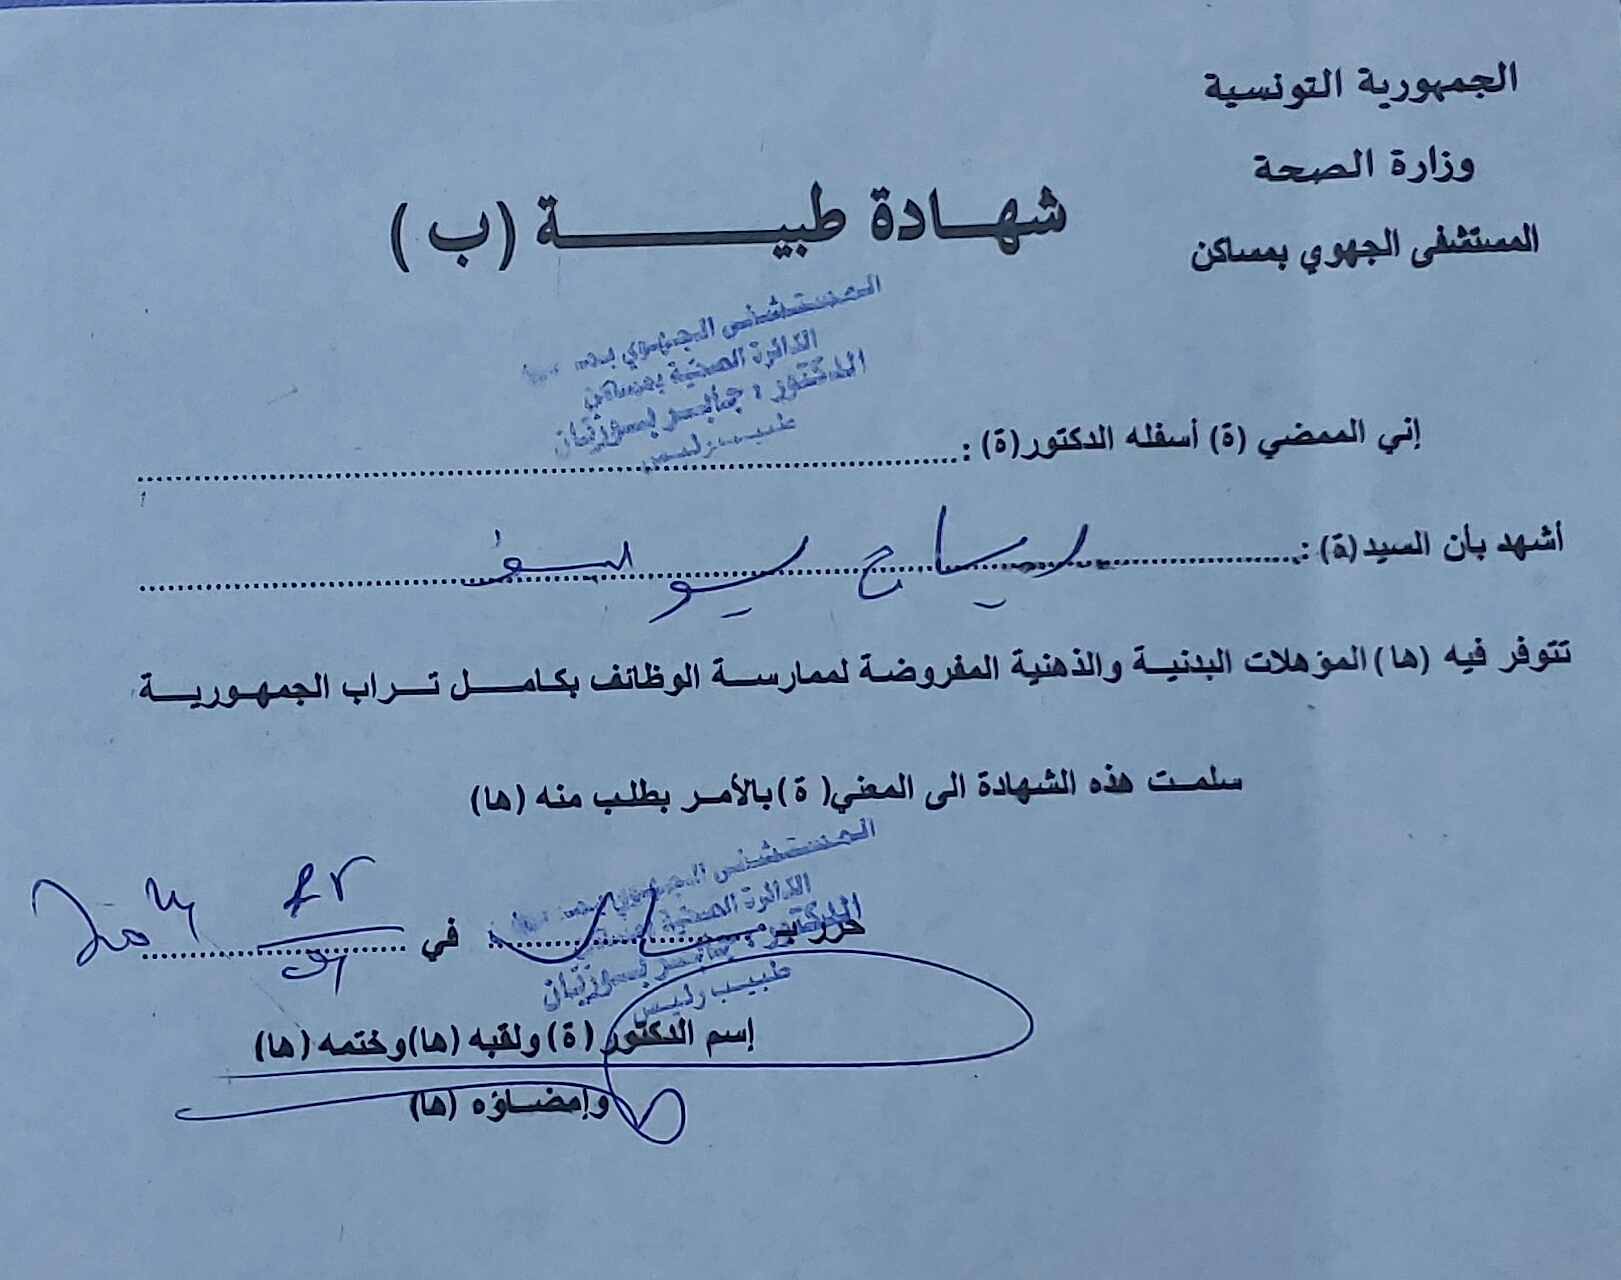 الجمهورية التونسية
وزارة الصحة
المستشفى الجهوي بمساكن
شهادة طبية (ب)
المستشفى الجهوي
الدائرة الصحية بمساكن
الدكتور : جابر بوزيان
طبيب رئيس
إني الممضي (ة) أسفله الدكتور(ة) :
أشهد بأن السيد(ة) : يوسف
تتوفر فيه (ها) المؤهلات البدنية والذهنية المفروضة لممارسة الوظائف بكامل تراب الجمهورية
سلمت هذه الشهادة الى المعني( ة) بالأمر بطلب منه (ها)
المستشفى الجهوي
الدائرة الصحية
الدكتور : جابر بوزيان
طبيب رئيس
حرر بـ في
إسم الدكتور (ة) ولقبه (ها) وختمه (ها)
وإمضاؤه (ها)